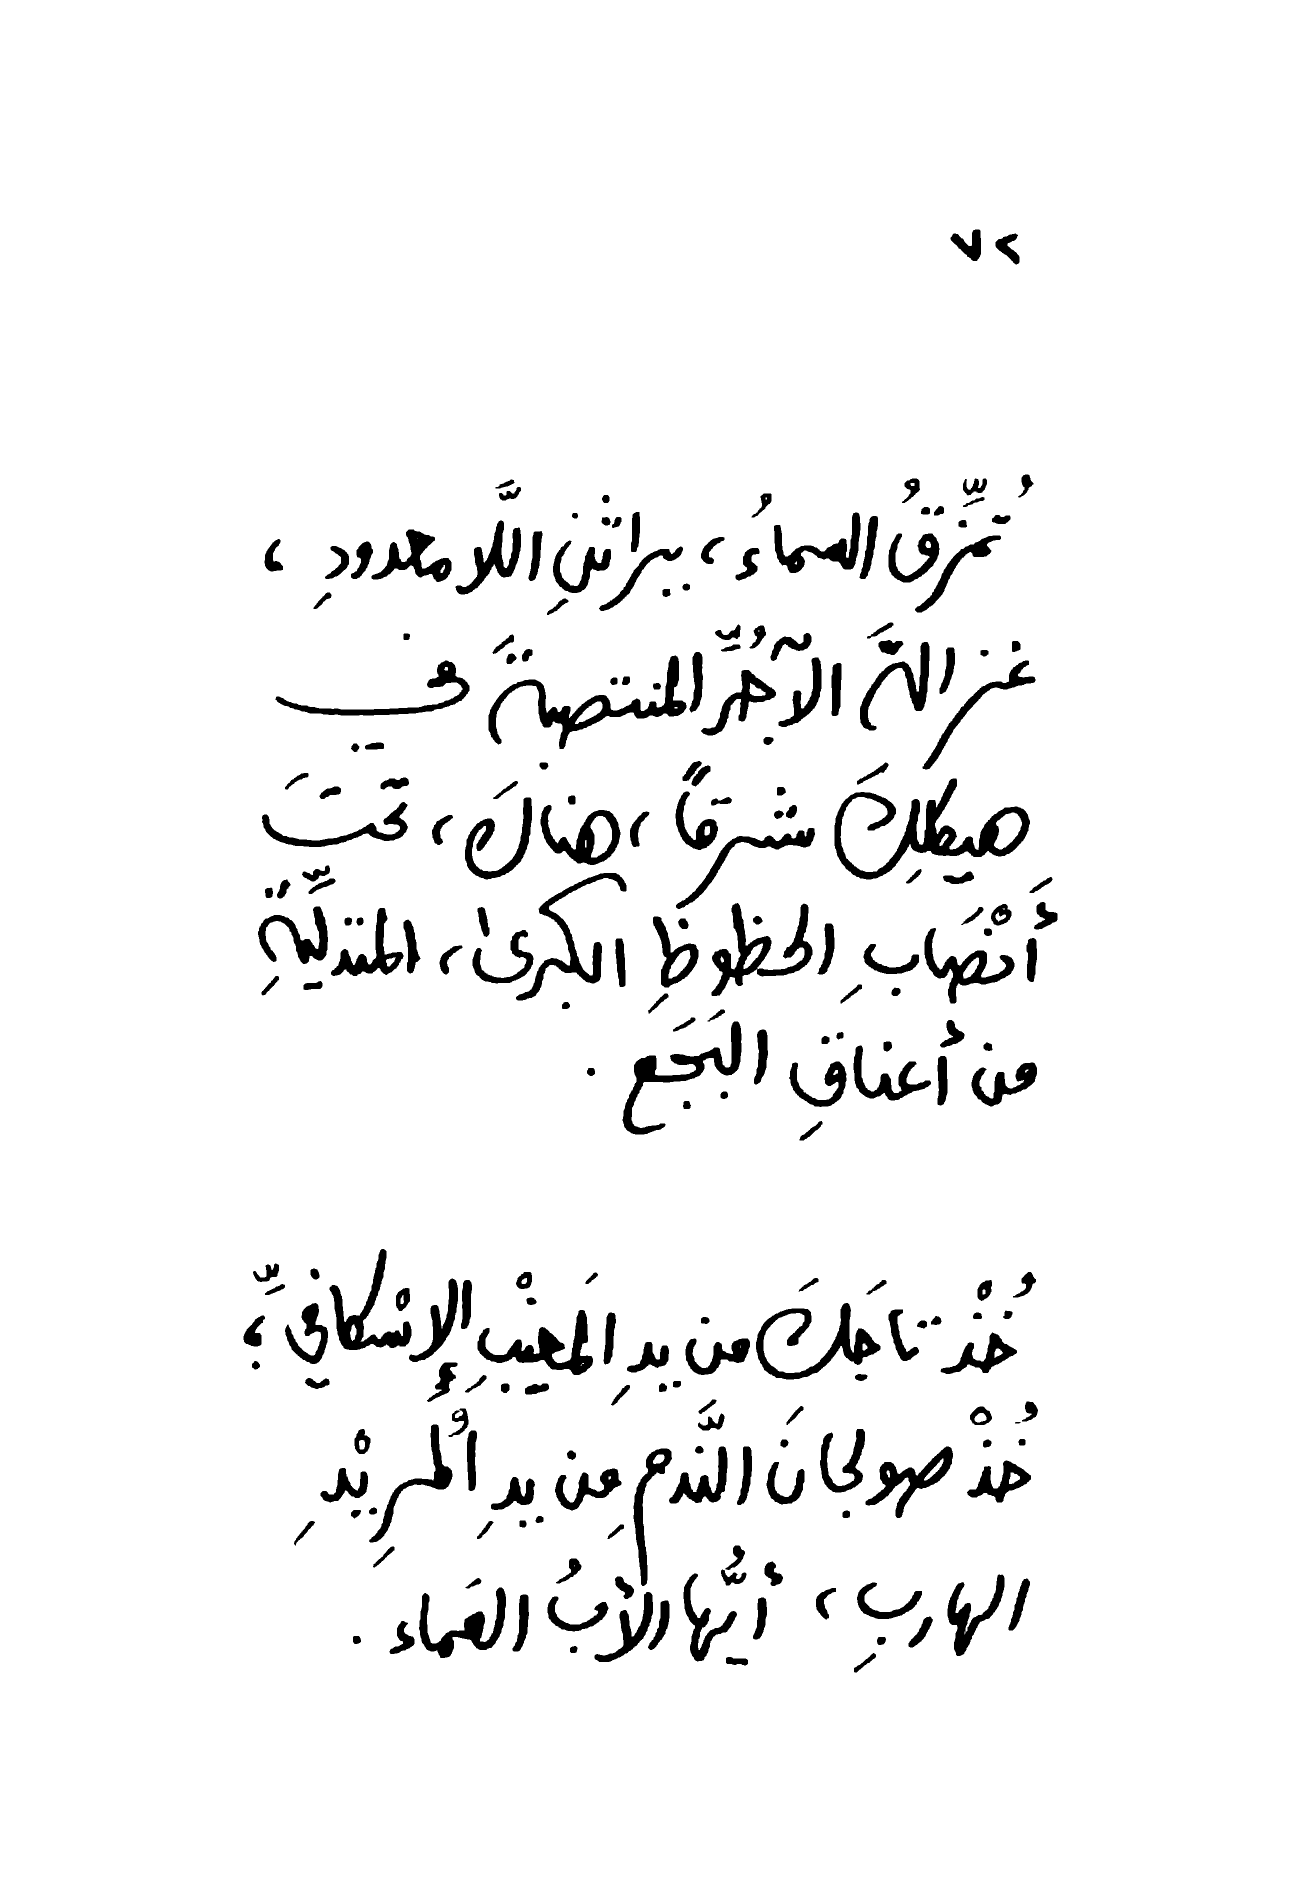 ٧٢
تُمزِّقُ السماءُ، ببراثنِ اللَّا محدودِ،
غزالةَ الآجُرِّ المنتصبةَ في
هيكلِكَ شرقاً، هناكَ، تحتَ
أَنْصَابِ الحظوظِ الكبرىٰ، المتدلِّيةِ
من أعناقِ البَجَع .
خُذْ تاجَكَ من يدِ المَغيْبِ الإِسْكافيِّ؛
خُذْ صولجانَ النَّدمِ من يدِ المُرِيْدِ
الهاربِ، أيُّها الأبُ العَماء .